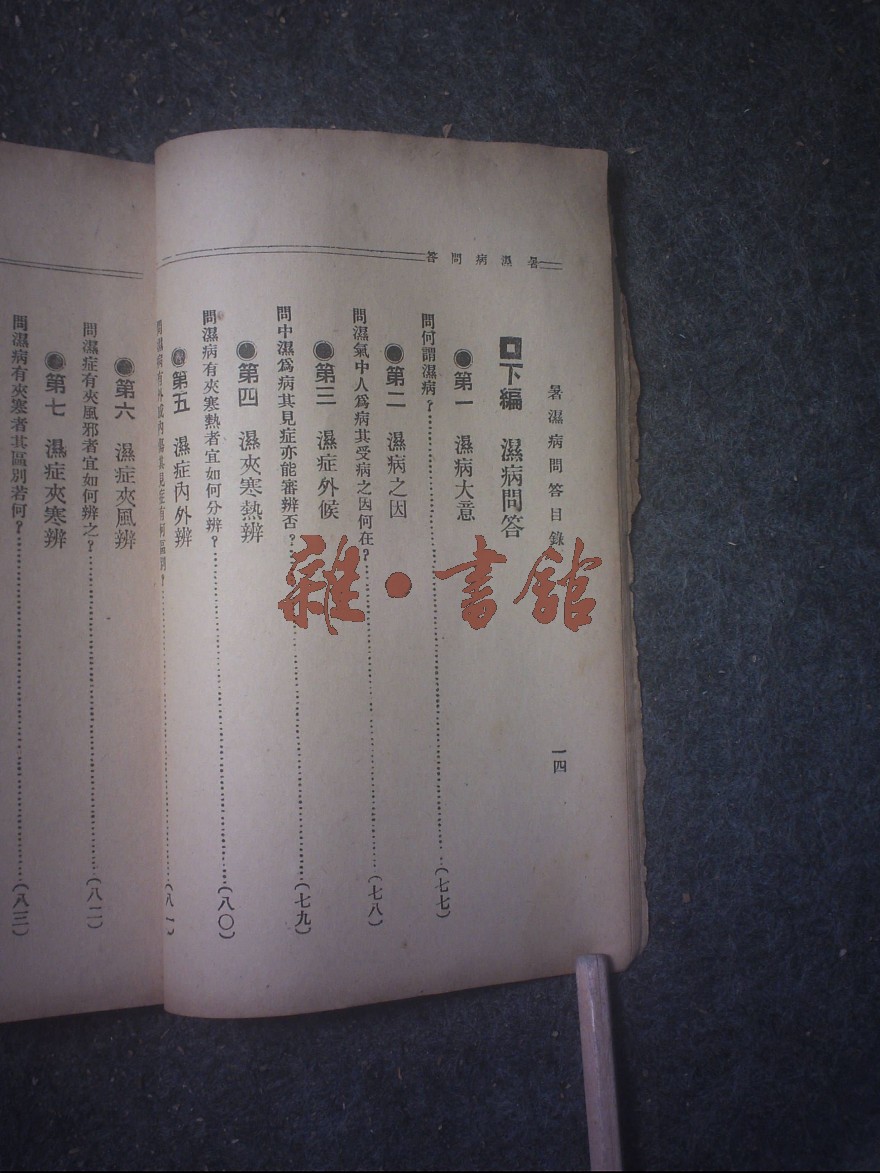 暑濕病問答
暑濕病問答目錄
一四
下編 濕病問答
第一 濕病大意
問何謂濕病？……(七七)
第二 濕病之因
問濕氣中人爲病其受病之因何在？……(七八)
第三 濕症外候
問中濕爲病其見症亦能審辨否？……(七九)
第四 濕夾寒熱辨
問濕病有夾寒熱者宜如何分辨？……(八〇)
第五 濕症內外辨
問濕病有外感內傷其見症有何區別？……(八一)
第六 濕症夾風辨
問濕症有夾風邪者宜如何辨之？……(八二)
第七 濕症夾寒辨
問濕病有夾寒者其區別若何？……(八三)
雜·書館